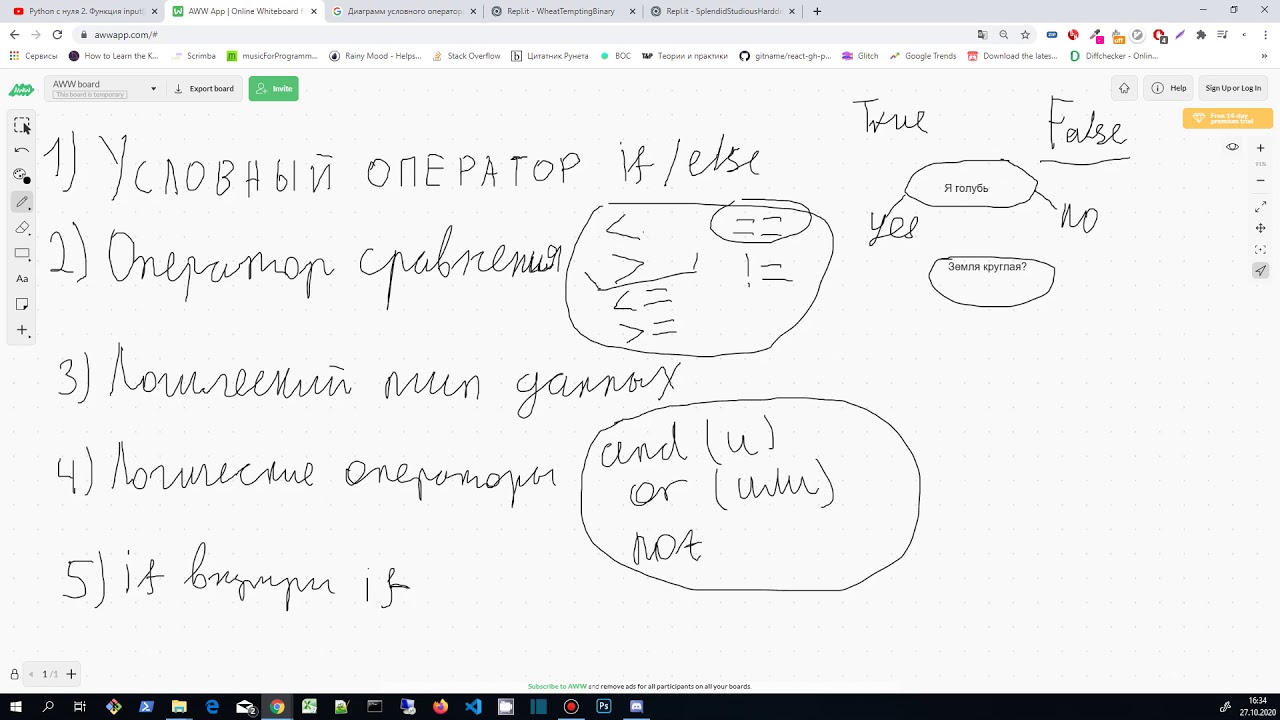 Python с нуля 2. Функция input(
AWW App | Online Whiteboard f
Диаграмм условного оператор
Repl.it - WheatTemptingBinary
Repl.it - SplendidStudiousHarddri
awwapp.com/#
Сервисы
How to Learn the K...
Scrimba
musicForProgramm...
Rainy Mood - Mobil...
Stack Overflow
Цитатник Рунета
ВОС
T&P Теории и практики
gitname/react-gh-p...
Glitch
Google Trends
Download the lates...
Diffchecker - Onlin...
AWW board
This board is temporary
Export board
Invite
Help
Sign Up or Log In
Free 14-day
premium trial
91%
Aa
True False
1) Условный оператор if/else
Я голубь
yes no
2) Оператор сравнения
< ==
> ! !=
<=
>=
Земля круглая?
3) Логический тип данных
4) Логические операторы
and (и)
or (или)
not
5) if внутри if
1 / 1
Subscribe to AWW and remove ads for all participants on all your boards.
16:34
27.10.2020